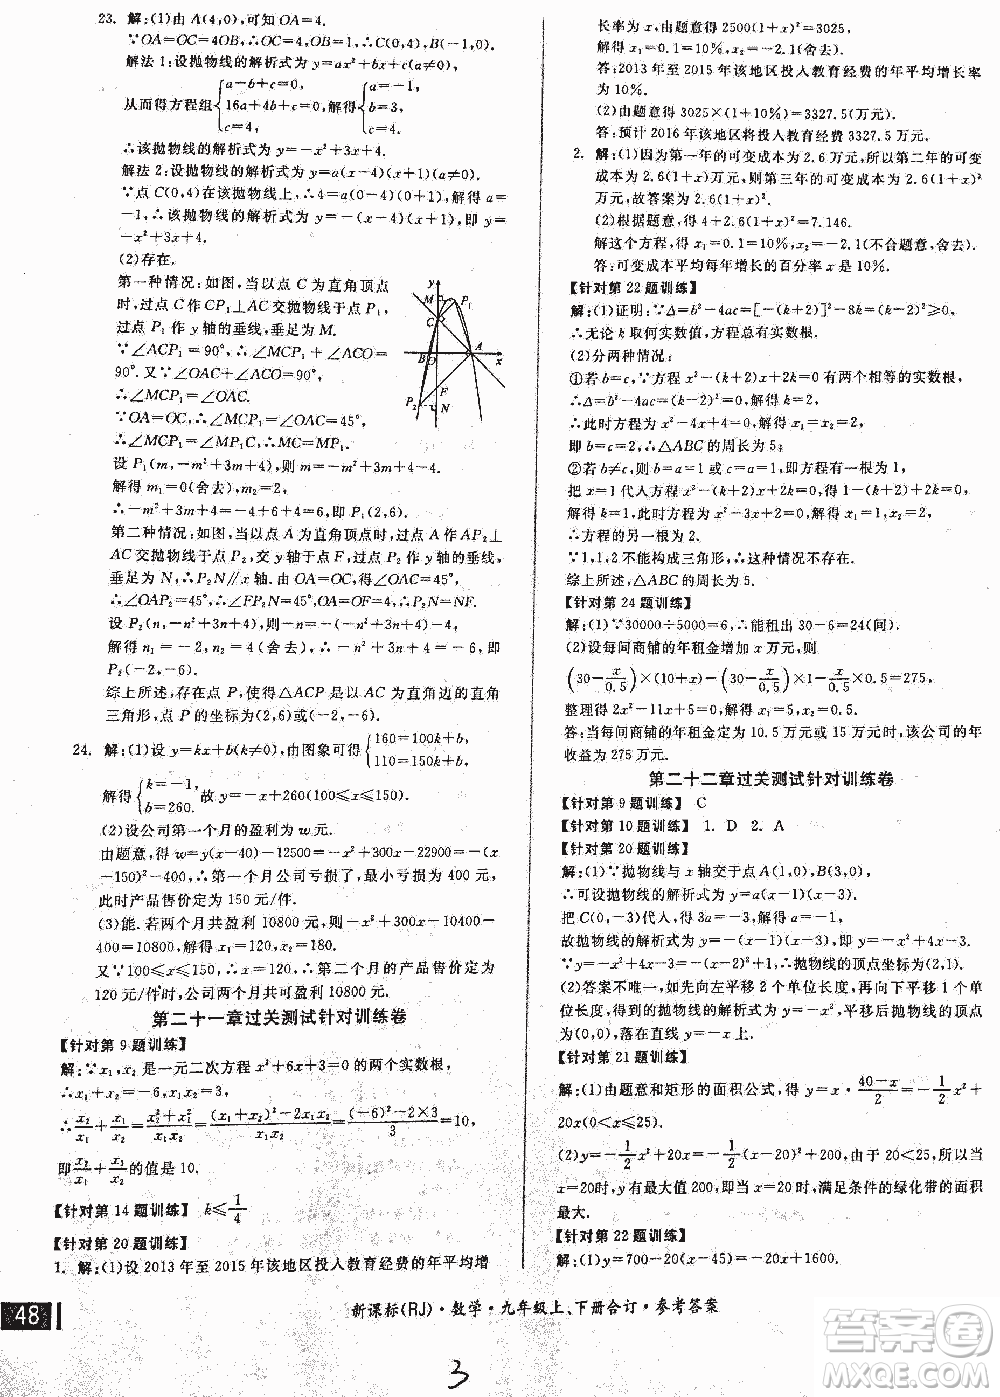 23. 解:(1)由 A(4,0),可知 OA=4.
∵OA=OC=4OB,∴OC=4,OB=1,∴C(0,4),B(-1,0).
解法 1:设抛物线的解析式为 y=ax²+bx+c(a≠0),
从而得方程组{a-b+c=0, 16a+4b+c=0, c=4,解得{a=-1, b=3, c=4.
∴该抛物线的解析式为 y=-x²+3x+4.
解法 2:设抛物线的解析式为 y=a(x-4)(x+1).
∵点 C(0,4)在抛物线上,∴4=a(0-4)(0+1),解得 a=
-1,∴该抛物线的解析式为 y=-(x-4)(x+1),即 y=
-x²+3x+4.
(2)存在.
第一种情况:如图,当以点 C 为直角顶点
时,过点 C 作 CP₁⊥AC交抛物线于点 P₁,
过点 P₁ 作 y 轴的垂线,垂足为 M.
∵∠ACP₁=90°,∴∠MCP₁+∠ACO=
90°.又∵∠OAC+∠ACO=90°,
∴∠MCP₁=∠OAC.
∵OA=OC,∴∠MCP₁=∠OAC=45°,
∴∠MCP₁=∠MP₁C,∴MC=MP₁.
设 P₁(m,-m²+3m+4),则 m=-m²+3m+4-4,
解得 m₁=0(舍去),m₂=2,
∴-m²+3m+4=-4+6+4=6,即 P₁(2,6).
第二种情况:如图,当以点 A 为直角顶点时,过点 A 作 AP₂⊥
AC交抛物线于点 P₂,交 y轴于点 F,过点 P₂ 作 y 轴的垂线,
垂足为 N,∴P₂N∥x 轴.由 OA=OC,得∠OAC=45°,
∴∠OAP₂=45°,∴∠FP₂N=45°,OA=OF=4,∴P₂N=NF.
设 P₂(n,-n²+3n+4),则-n=-4-(-n²+3n+4),
解得 n₁=-2,n₂=4(舍去),∴-n²+3n+4=-6,即
P₂(-2,-6).
综上所述,存在点 P,使得△ACP 是以 AC 为直角边的直角
三角形,点 P 的坐标为(2,6)或(-2,-6).
24. 解:(1)设 y=kx+b(k≠0),由图象可得{160=100k+b, 110=150k+b,
解得{k=-1, b=260.故 y=-x+260(100≤x≤150).
(2)设公司第一个月的盈利为 w 元.
由题意,得 w=y(x-40)-12500=-x²+300x-22900=-(x
-150)²-400,∴第一个月公司亏损了,最小亏损为400 元,
此时产品售价定为 150 元/件.
(3)能.若两个月共盈利 10800 元,则-x²+300x-10400-
400=10800,解得 x₁=120,x₂=180.
又∵100≤x≤150,∴x=120,∴第二个月的产品售价定为
120 元/件时,公司两个月共可盈利 10800 元.
第二十一章过关测试针对训练卷
【针对第 9 题训练】
解:∵x₁,x₂ 是一元二次方程 x²+6x+3=0 的两个实数根,
∴x₁+x₂=-6,x₁x₂=3,
∴x₂/x₁+x₁/x₂=(x₂²+x₁²)/(x₁x₂)=((x₁+x₂)²-2x₁x₂)/(x₁x₂)=((-6)²-2×3)/3=10,
即x₂/x₁+x₁/x₂的值是 10.
【针对第 14 题训练】 k≤1/4
【针对第 20 题训练】
1. 解:(1)设 2013 年至 2015 年该地区投入教育经费的年平均增
长率为 x,由题意,得 2500(1+x)²=3025
解得 x₁=0.1=10%,x₂=-2.1(舍去).
答:2013 年至 2015 年该地区投入教育经费的年平均增长率
为 10%.
(2)由题意得 3025×(1+10%)=3327.5(万元).
答:预计 2016 年该地区将投入教育经费 3327.5 万元.
2. 解:(1)因为第一年的可变成本为 2.6 万元,所以第二年的可变
成本为 2.6(1+x)万元,则第三年的可变成本为 2.6(1+x)²
万元,故答案为 2.6(1+x)².
(2)根据题意,得 4+2.6(1+x)²=7.146.
解这个方程,得 x₁=0.1,x₂=-2.1(不合题意,舍去).
答:可变成本平均每年增长的百分率为 10%.
【针对第 22 题训练】
解:(1)证明:∵Δ=b²-4ac=[-(k+2)]²-8k=(k-2)²≥0,
∴无论 k 取何实数值,方程总有实数根.
(2)分两种情况:
①若 b=c,∵方程 x²-(k+2)x+2k=0 有两个相等的实数根,
∴Δ=b²-4ac=(k-2)²=0,解得 k=2,
∴此时方程为 x²-4x+4=0,解得 x₁=x₂=2,
即 b=c=2,∴△ABC 的周长为 5;
②若 b≠c,则 b=a=1 或 c=a=1,即方程有一个根为 1.
把 x=1代入方程x²-(k+2)x+2k=0,得 1-(k+2)+2k=0,
解得 k=1,∴此时方程为x²-3x+2=0,解得 x₁=1,x₂=2,
∴方程的另一根为 2.
∵1,1,2不能构成三角形,∴这种情况不存在.
综上所述,△ABC的周长为 5.
【针对第 24 题训练】
解:(1)∵30000÷5000=6,∴能租出 30-6=24(间).
(2)设每间商铺的年租金增加 x 万元,则
(30-x/0.5)×(10+x)-(30-x/0.5)×1-x/0.5×0.5=275,
整理得 2x²-11x+5=0,解得 x₁=5,x₂=0.5.
答:当每间商铺的年租金定为 10.5 万元或 15 万元时,该公司的年
收益为 275 万元.
第二十二章过关测试针对训练卷
【针对第 9 题训练】 C
【针对第 10 题训练】 1. D 2. A
【针对第 20 题训练】
解:(1)∵抛物线与 x 轴交于点 A(1,0),B(3,0),
∴可设抛物线的解析式为 y=a(x-1)(x-3).
把 C(0,-3)代入,得 3a=-3,解得 a=-1,
故抛物线的解析式为 y=-(x-1)(x-3),即 y=-x²+4x-3.
∵y=-x²+4x-3=-(x-2)²+1,∴抛物线的顶点坐标为(2,1).
(2)答案不唯一,如先向左平移 2 个单位长度,再向下平移 1个
单位长度,得到的抛物线的解析式为 y=-x²,平移后抛物线的顶点为
(0,0),落在直线 y=-x 上.
【针对第 21 题训练】
解:(1)由题意和矩形的面积公式,得 y=x·(40-x)/2=-1/2x²+
20x(0<x≤25).
(2)∵y=-1/2x²+20x=-1/2(x-20)²+200,∴当 x=20
时,y 有最大值 200,即当 x=20 时,满足条件的绿化带的面积
最大.
【针对第 22 题训练】
解:(1)y=700-20(x-45)=-20x+1600.
48
新课标(RJ)·数学·九年级上、下册合订·参考答案
3
答案圈
MXQE.COM